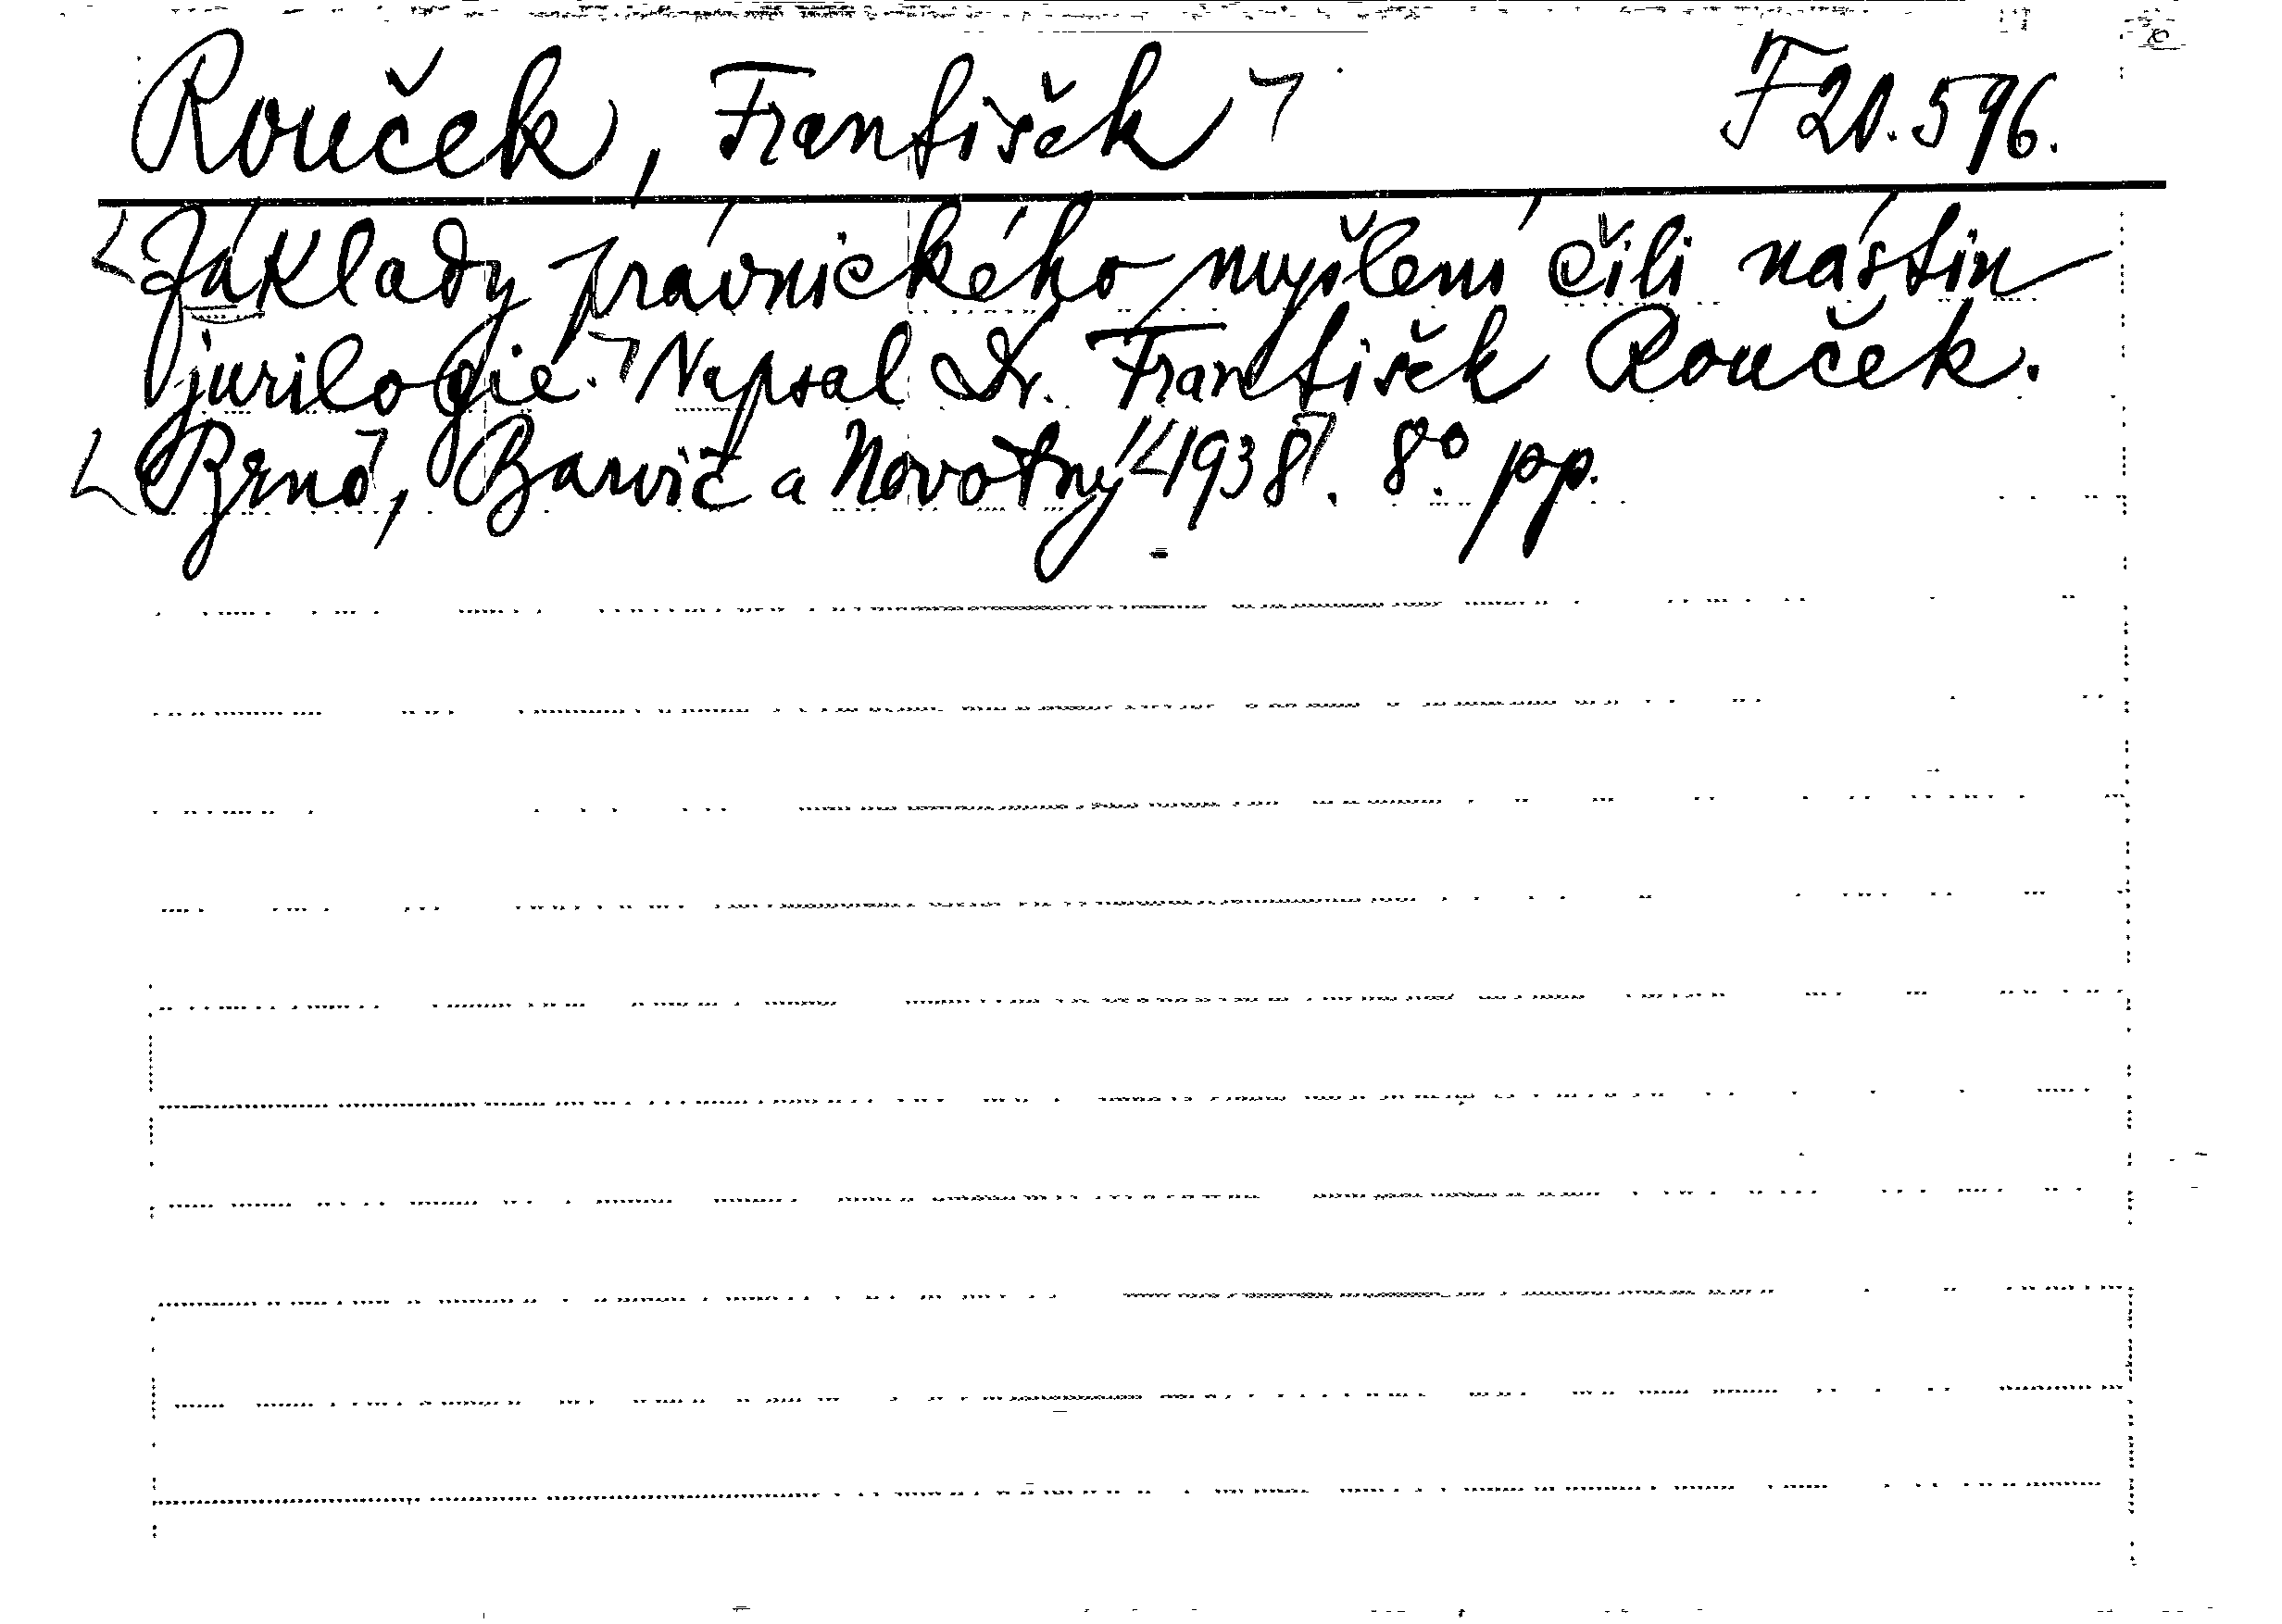 Rouček, František F 20.596.
Základy právnického myšlení čili nástin
jurilogie. Napsal Dr. František Rouček.
Brno, Barvič a Novotný 1938. 8° pp.